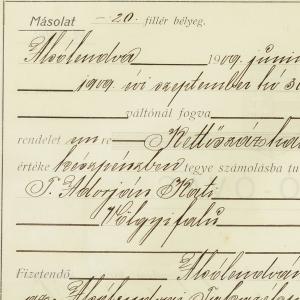 Másolat – 20. fillér bélyeg.
Alsólendva 1909. június
1909. évi szeptember hó 30
váltónál fogva
rendelet en re Kettőszázha
értéke készpénzben tegye számolásba tu
T. Adorján Kati
Völgyifalu
Fizetendő Alsólendvá
Alsólendvai Takaré